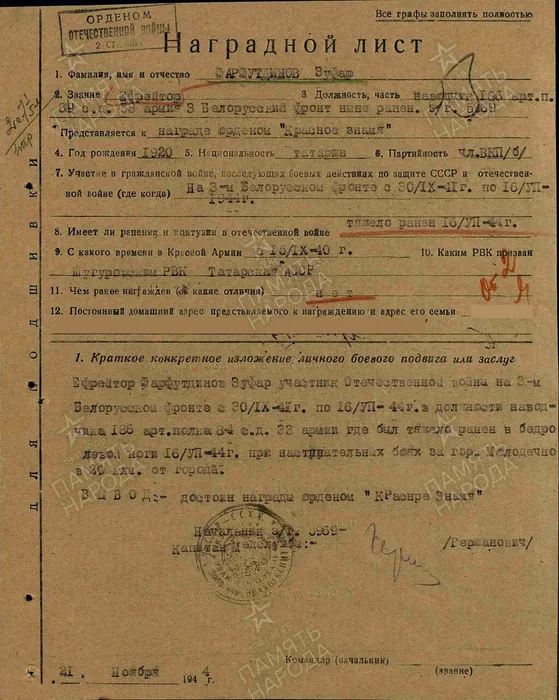 Все графы заполнять полностью
ОРДЕНОМ
ОТЕЧЕСТВЕННОЙ ВОЙНЫ
2 СТ
Наградной лист
1. Фамилия, имя и отчество ФАРФУТДИНОВ Зуфар
2. Звание Ефрейтор 3 Должность, часть наводчик 188 арт.п.
с.д. 33 армии 3 Белорусский фронт ныне ранен. э/г.
Представляется к награде орденом "Красное знамя"
4. Год рождения 1920 5. Национальность татарин 6. Партийность чл.ВКП/б/
7. Участие в гражданской войне, последующих боевых действиях по защите СССР и отечествен-
ной войне (где когда) На 3-м Белорусском фронте с 30/IX-41г. по 16/УП-
1944г.
8. Имеет ли ранения и контузии в отечественной войне тяжело ранен 16/УП-44г.
9. С какого времени в Красной Армии с 16/IX-40 г. 10. Каким РВК призван
Шугуровским РВК Татарская АССР
11. Чем ранее награжден (за какие отличия) нет
12. Постоянный домашний адрес представляемого к награждению и адрес его семьи
1. Краткое конкретное изложение личного боевого подвига или заслуг
Ефрейтор Фарфутдинов Зуфар участник Отечественной войны на 3-м
Белорусском фронте с 30/IX-41г. по 16/УП-44г. в должности навод-
чика 188 арт.полка с.д. 33 армии где был тяжело ранен в бедро
левой ноги 16/УП-44г. при наступательных боях за гор. Молодечно
в 20 клм. от города.
ВЫВОД:- достоин награды орденом "Красное Знамя"
Начальник э/г.
Капитан медслужбы:- /Гершанович/
Командир (начальник)
(звание)
21 Ноября 1944
ДЛЯ ПОДШИВКИ
ПАМЯТЬ НАРОДА